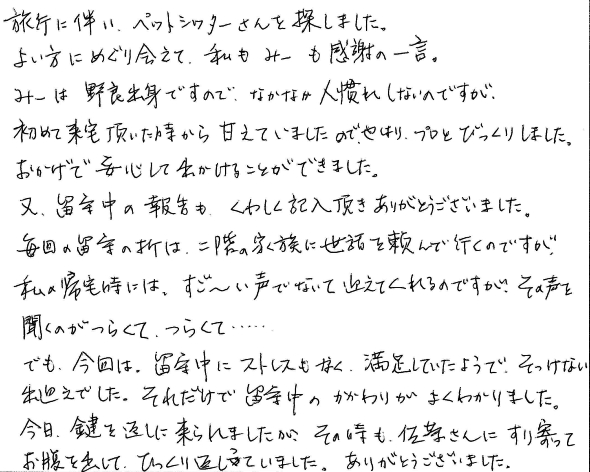 旅行に伴い、ペットシッターさんを探しました。
よい方にめぐり会えて、私もみーも感謝の一言。
みーは野良出身ですので、なかなか人慣れしないのですが、
初めて来宅頂いた時から甘えていましたので、やはり、プロとびっくりしました。
おかげで安心して出かけることができました。
又、留守中の報告も、くわしく記入頂きありがとうございました。
毎回の留守の折は、二階の家族に世話を頼んで行くのですが、
私の帰宅時には、すご〜い声でないて迎えてくれるのですが、その声を
聞くのがつらくて、つらくて……
でも、今回は、留守中にストレスもなく、満足していたようで、そっけない
出迎えでした。それだけで留守中のかかわりがよくわかりました。
今日、鍵を返しに来られましたが、その時も、佐等さんにすり寄って
お腹を出して、ひっくり返っていました。ありがとうございました。